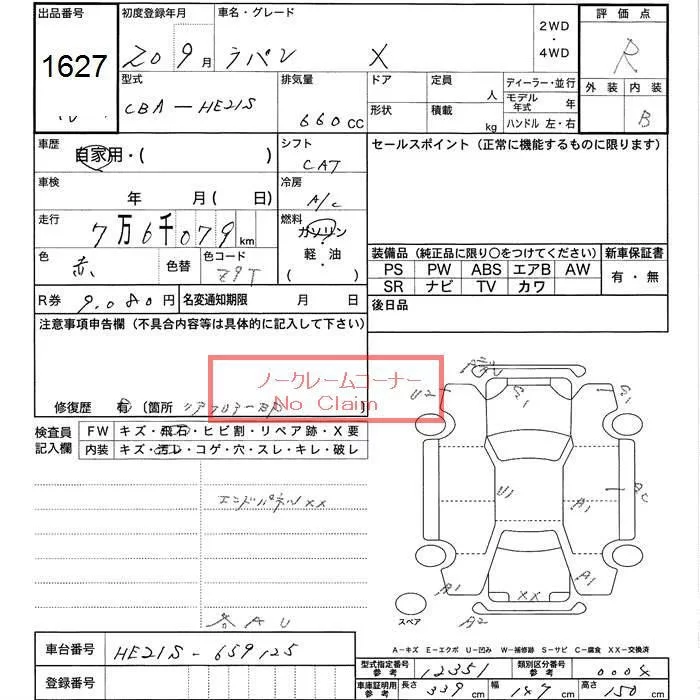 出品番号 初度登録年月 車名・グレード 2WD・4WD 評価点
1627 20 9月 ラパン X R
型式 排気量 ドア 定員 人 ディーラー・並行 外装 内装
CBA-HE21S 660cc 形状 積載 kg モデル年式 年 B
ハンドル 左・右
車歴 自家用・( ) シフト CAT セールスポイント(正常に機能するものに限ります)
車検 年 月(日) 冷房 A/C
走行 7万6千079km 燃料 ガソリン・軽油・( )
色 赤 色替 色コード Z9T
装備品(純正品に限り○をつけてください) 新車保証書
PS PW ABS エアB AW 有・無
SR ナビ TV カワ
R券 9.080円 名変通知期限 月 日 後日品
注意事項申告欄(不具合内容等は具体的に記入して下さい)
ノークレームコーナー
No Claim
修復歴 有(箇所 リアフロアー )
検査員記入欄 FW キズ・飛石・ヒビ割・リペア跡・X要
内装 キズ・汚レ・コゲ・穴・スレ・キレ・破レ
U2 G1 G1
エンドパネルXX U1 A1 A2
A2 XX A1
各AU
スペア
A-キズ E-エクボ U-凹み W-補修跡 S-サビ C-腐食 XX-交換済
車台番号 HE21S-659125
型式指定番号参考 12351 類別区分番号参考 0004
登録番号
車庫証明用参考 長さ 339cm 幅 147cm 高さ 150cm